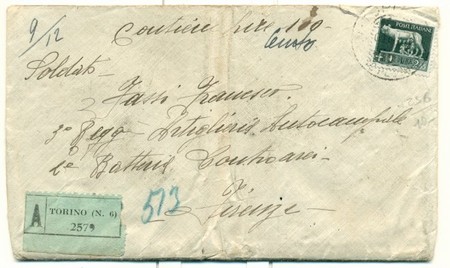 9/12
Contiene lire 100
Cento
POSTE ITALIANE
Soldato
Fassi Francesco
3º Regg Artiglieria Autocampale
1ª Batteria Controaerei
Firenze
513
A TORINO (N. 6)
2579